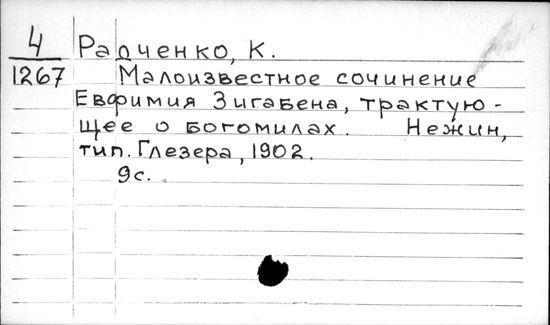 4 Радченко, К.
1267 Малоизвестное сочинение
Евфимия Зигабена, трактую-
щее о богомилах. Нежин,
тип. Глезера, 1902.
9с.